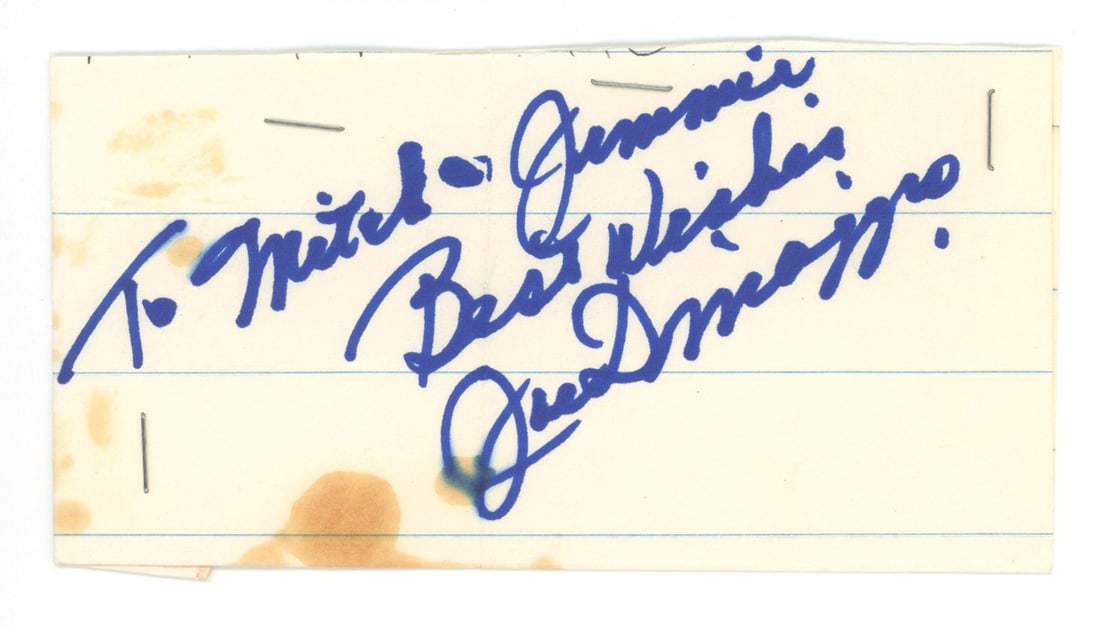 To Mitch - Jimmie
Best Wishes
Joe DiMaggio